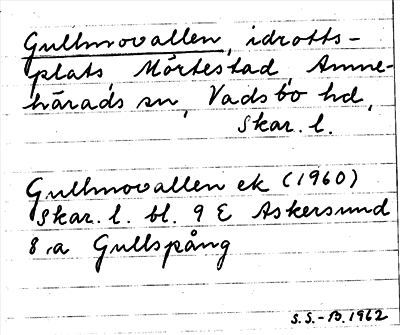 Gullmovallen, idrotts-
plats, Mörtestad, Amne-
härads sn, Vadsbo hd,
Skar. l.
Gullmovallen ek (1960)
Skar. l. bl. 9 E Askersund
8,a Gullspång
S.S.-B. 1962